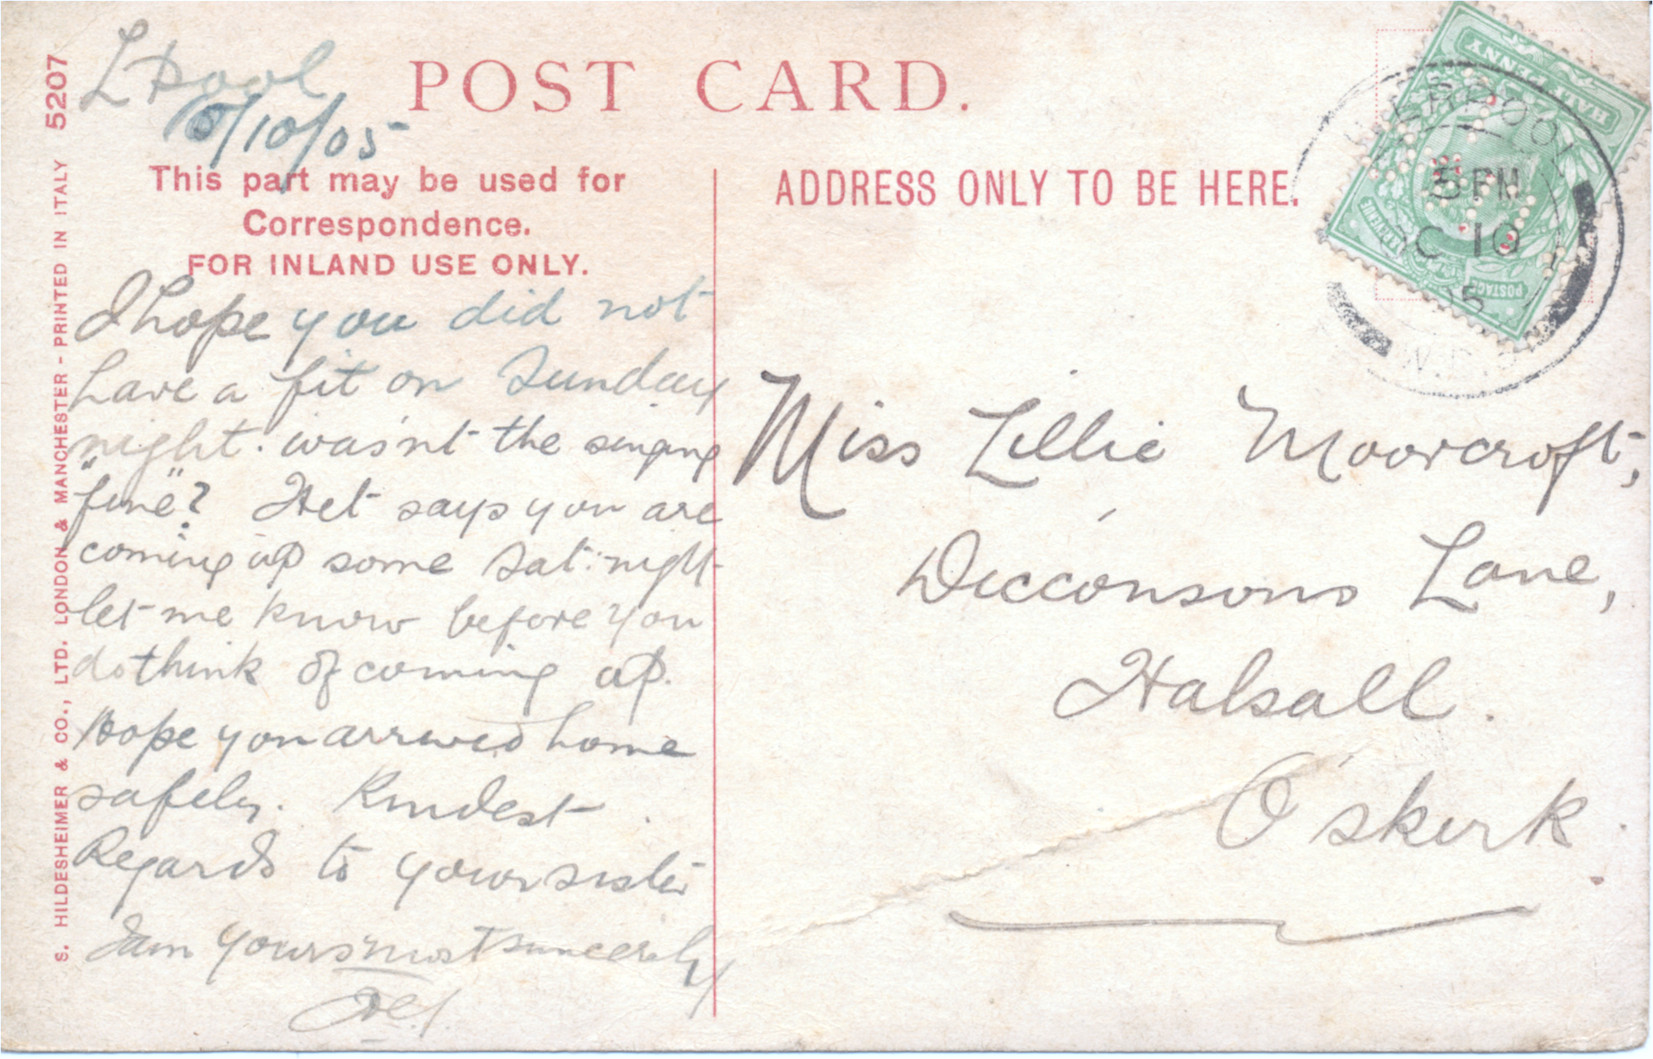 L'pool
5/10/05
POST CARD.
This part may be used for
Correspondence.
FOR INLAND USE ONLY.
ADDRESS ONLY TO BE HERE.
I hope you did not
have a fit on Sunday
night. was'nt the singing
"fine"? Het says you are
coming up some Sat: night
let me know before you
do think of coming up.
Hope you arrived home
safely. Kindest
Regards to your sister
I am yours most sincerely
Miss Lillie Moorcroft,
Dicconsons Lane,
Halsall.
O'skirk
S. HILDESHEIMER & CO., LTD. LONDON & MANCHESTER - PRINTED IN ITALY 5207
HALF PENNY
POSTAGE
LIVERPOOL
PM
OC 10
05